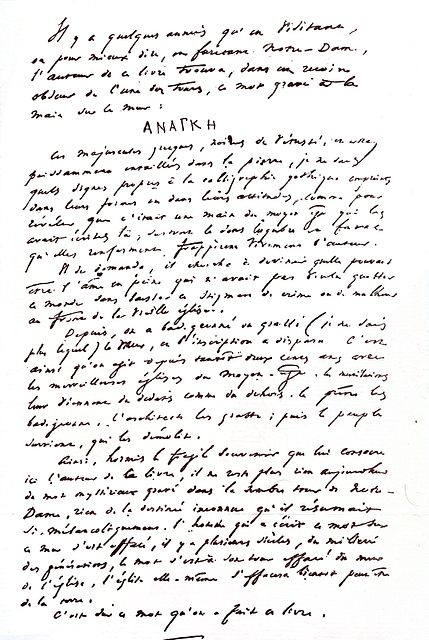 Il y a quelques années qu'en visitant,
ou pour mieux dire, en furetant Notre-Dame,
l'auteur de ce livre trouva, dans un recoin
obscur de l'une des tours, ce mot gravé à la
main sur le mur :
ΑΝΑΓΚΗ
Ces majuscules grecques, noires de vétusté, et assez
puissamment entaillées dans la pierre, je ne sais
quels signes propres à la calligraphie gothique empreints
dans leurs formes et dans leurs attitudes, comme pour
révéler que c'était une main du moyen âge qui les
avait écrites là, surtout le sens lugubre et fatal
qu'elles renferment, frappèrent vivement l'auteur.
Il se demanda, il chercha à deviner quelle pouvait
être l'âme en peine qui n'avait pas voulu quitter
ce monde sans laisser ce stigmate de crime ou de malheur
au front de la vieille église.
Depuis, on a badigeonné ou gratté (je ne sais
plus lequel) le mur, et l'inscription a disparu. C'est
ainsi qu'on agit depuis tantôt deux cents ans avec
les merveilleuses églises du moyen-âge. Les mutilations
leur viennent du dedans comme du dehors. Le prêtre les
badigeonne, l'architecte les gratte ; puis le peuple
survient, qui les démolit.
Ainsi, hormis le fragile souvenir que lui consacre
ici l'auteur de ce livre, il ne reste plus rien aujourd'hui
du mot mystérieux gravé dans la sombre tour de Notre-
Dame, rien de la destinée inconnue qu'il résumait
si mélancoliquement. L'homme qui a écrit ce mot sur
ce mur s'est effacé, il y a plusieurs siècles, du milieu
des générations, le mot s'est à son tour effacé du mur
de l'église, l'église elle-même s'effacera bientôt peut-être
de la terre.
C'est sur ce mot qu'on a fait ce livre.